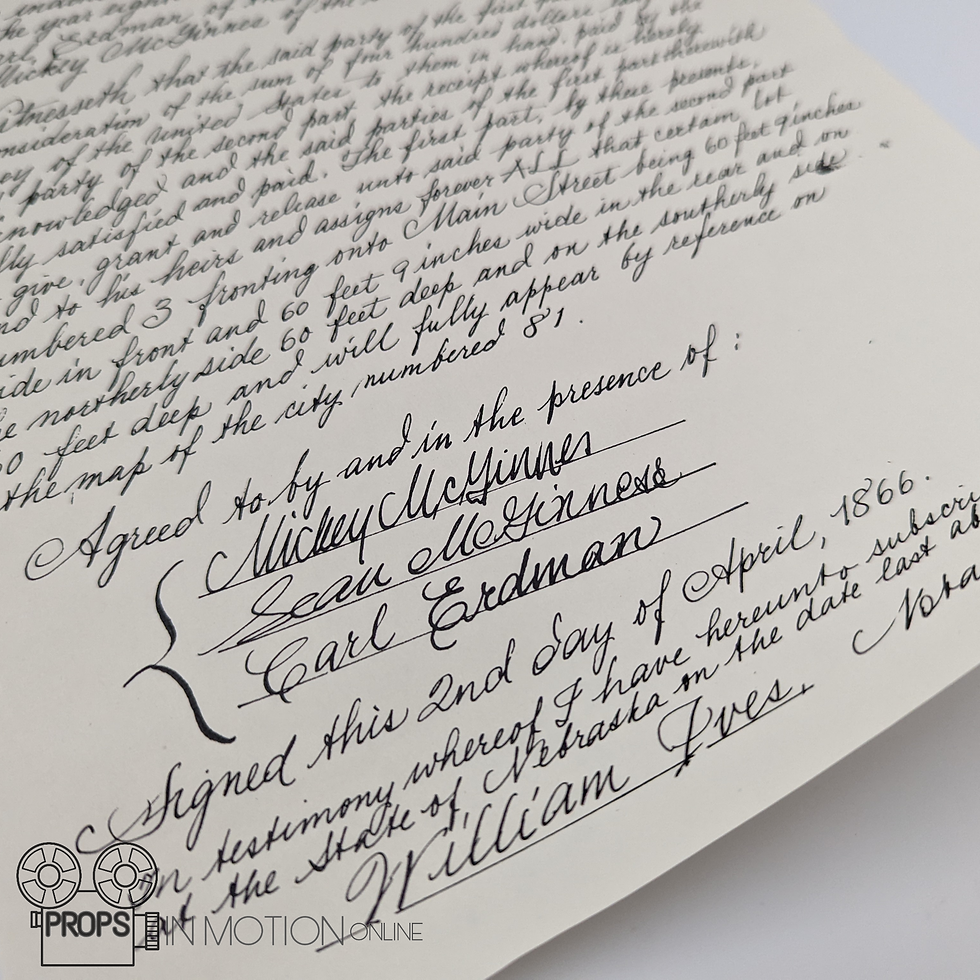 the year eigh
arl Erdman of the
Mickey McGinnes of the
itnesseth that the said party of the first
onsideration of the sum of four hundred dollars
ey of the united states to them in hand paid by the
party of the second part the receipt whereof is hereby
knowledged and the said parties of the first part therewith
lly satisfied and paid. The first part, by these presents,
give, grant and release unto said party of the second part
nd to his heirs and assigns forever ALL that certain lot
umbered 3 fronting onto Main Street being 60 feet 9 inches
ide in front and 60 feet 9 inches wide in the rear and on
he northerly side 60 feet deep and on the southerly side
60 feet deep and will fully appear by reference on
the map of the city numbered 81.
Agreed to by and in the presence of :
Mickey McGinnes
Sean McGinness
Carl Erdman
Signed this 2nd day of April, 1866.
In testimony whereof I have hereunto subscri
at the State of Nebraska on the date last ab
William Ives. Nota
PROPS IN MOTION ONLINE